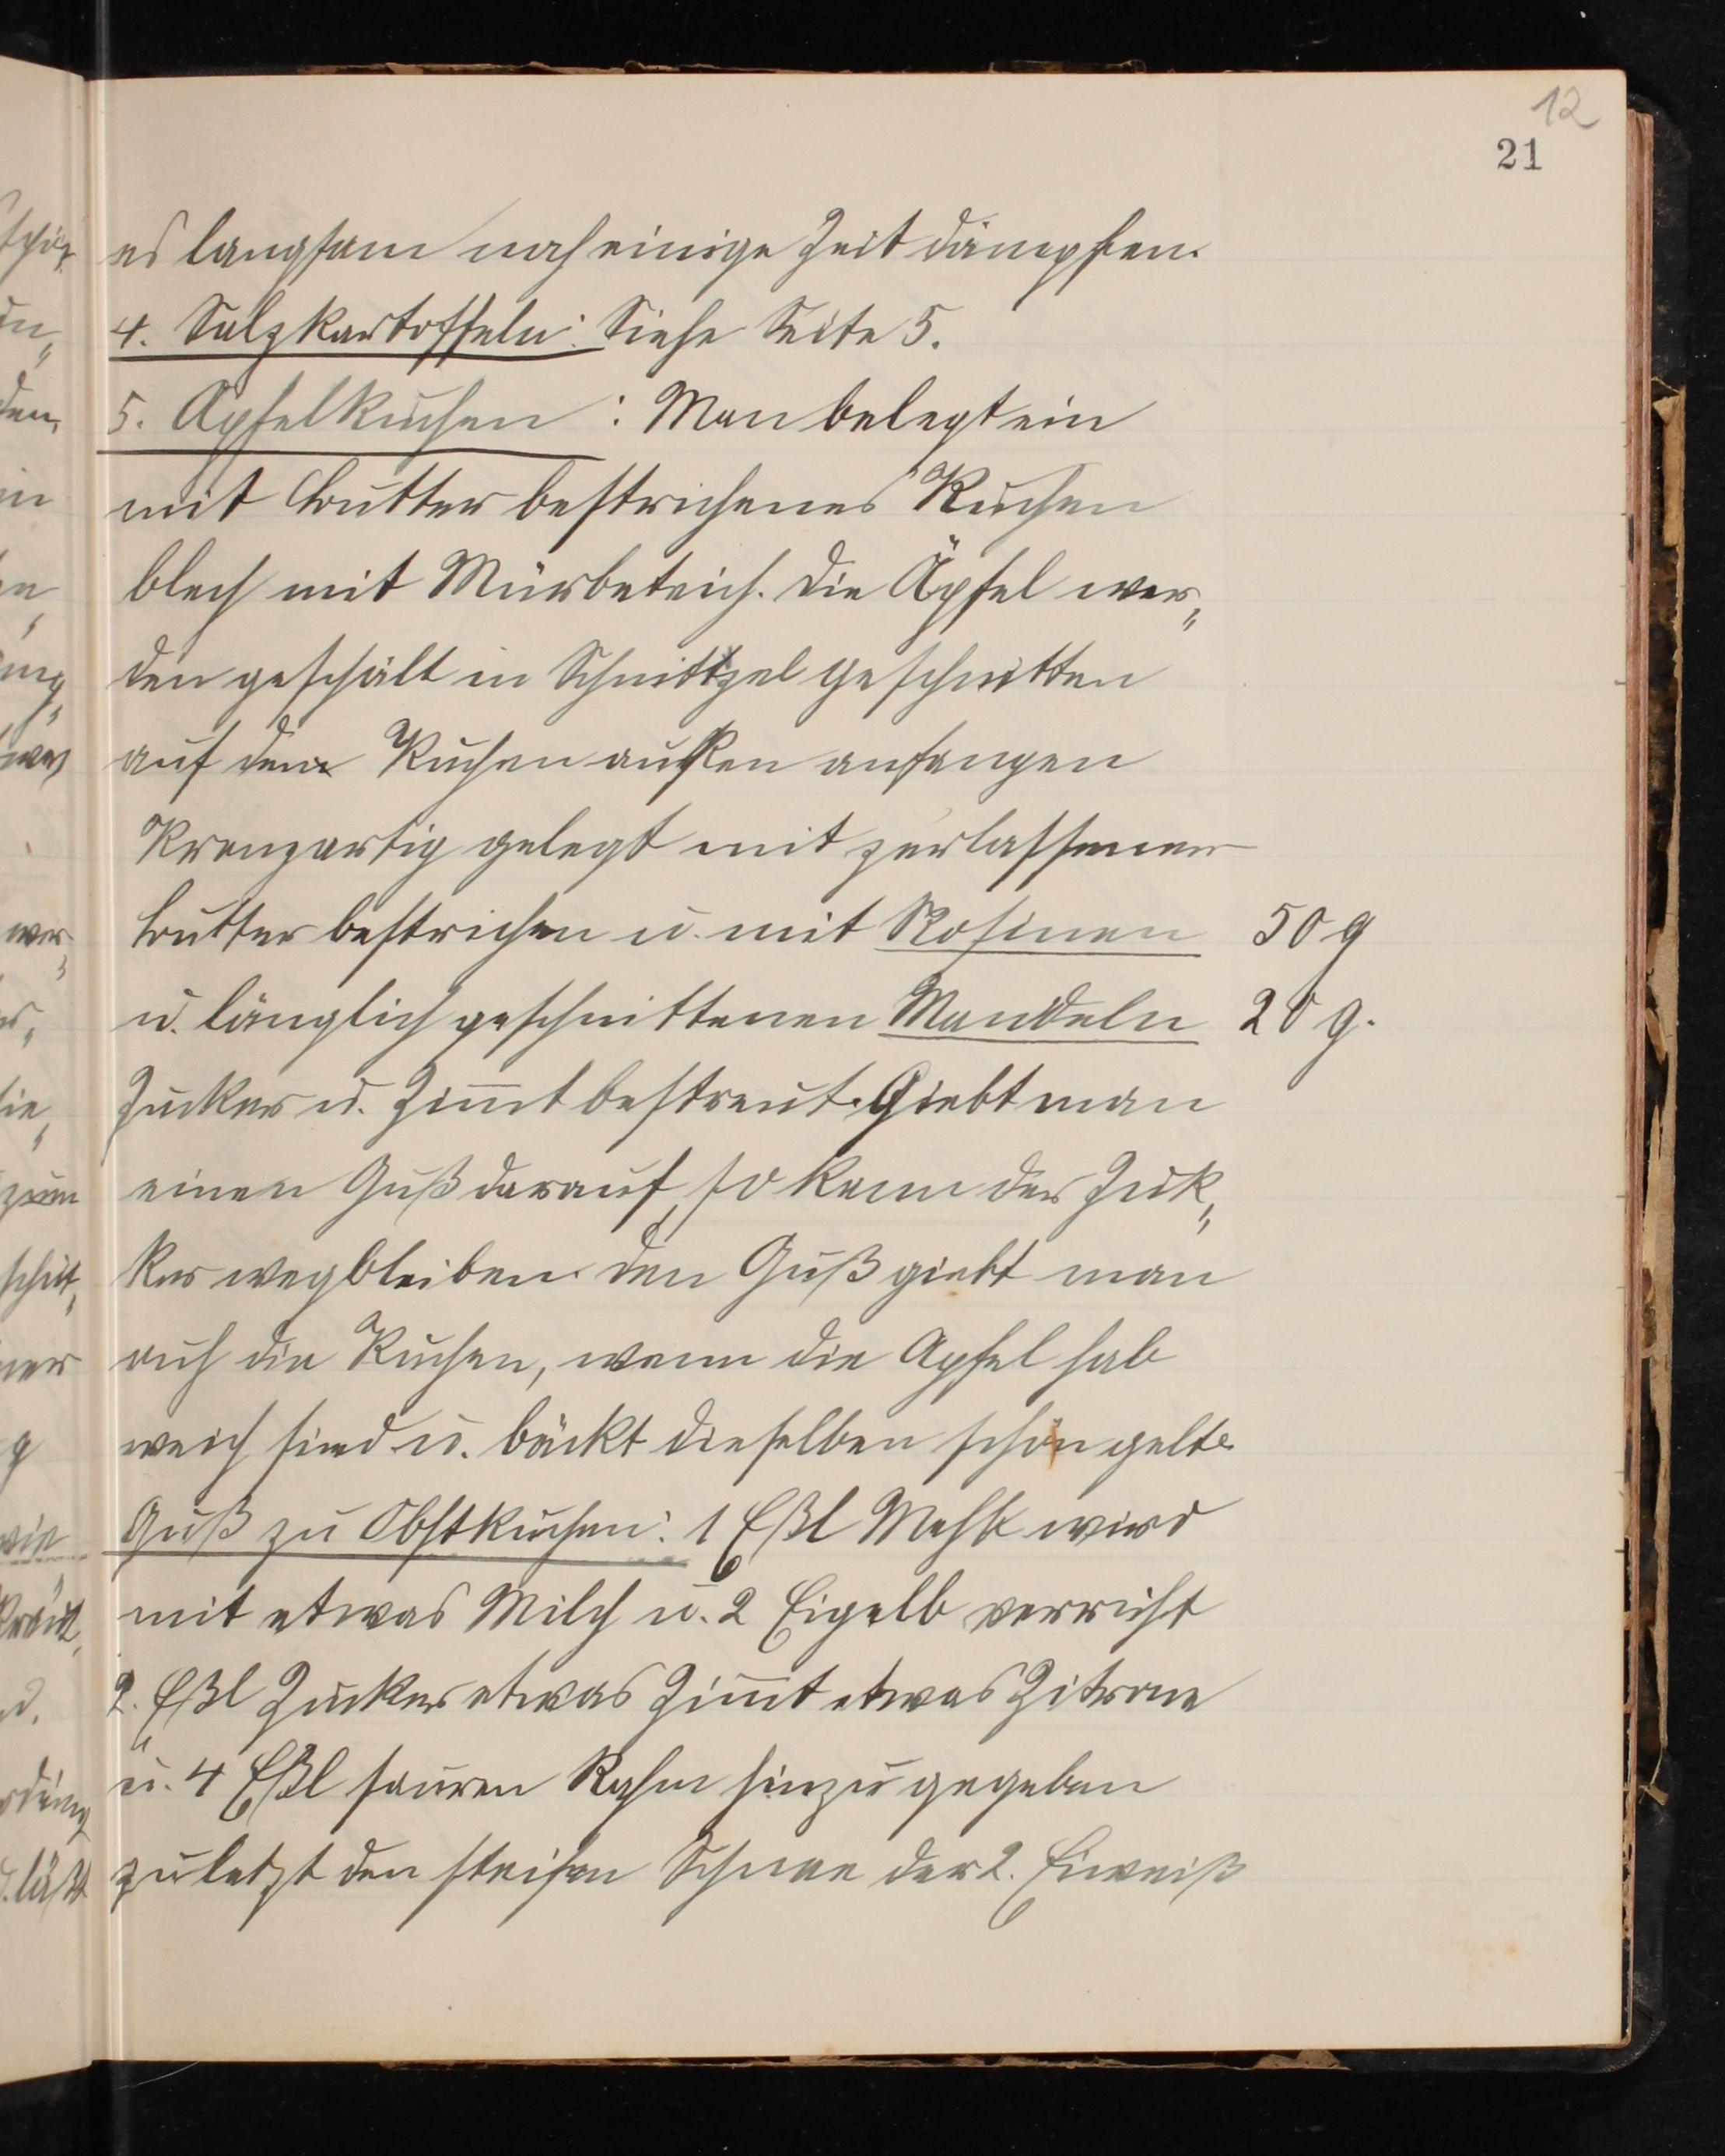 12
21
es langsam noch einige Zeit dämpfen.
4. Salzkartoffeln: Siehe Seite 5.
5. Apfelkuchen: Man belegt ein
mit Butter bestrichenes Kuchen
blech mit Mürbeteich. die Äpfel wer„
den geschält in Schnittzel geschnitten
auf den Kuchen außen anfangen
Kranzartig gelegt mit zerlassener
Butter bestrichen u. mit Rosinen 50 g
u. länglich geschnittenen Mandeln 20 g.
Zucker u. Zimmt bestreut. Giebt man
einen Guß darauf, so kann der Zuk„
ker wegbleiben. den Guß giebt man
auf die Kuchen, wenn die Apfel halb
weich sind u. bäckt dieselben schön gelb.
Guß zu Obstkuchen: 1 Eßl Mehl wird
mit etwas Milch u. 2 Eigelb verrührt
2. Eßl Zucker etwas Zimmt etwas Zitrone
u. 4 Eßl sauren Rahm hinzu gegeben
zuletzt den steifen Schnee der 2. Eiweiß